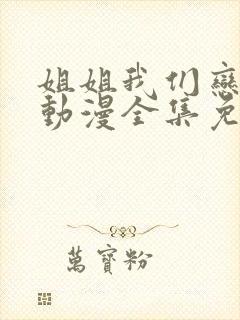 姐姐我们戀
動漫全集免
萬寶粉